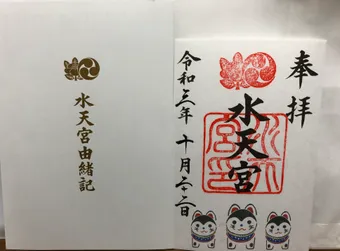 水天宮由緒記
奉拝
水天宮
令和三年 十月二十二日